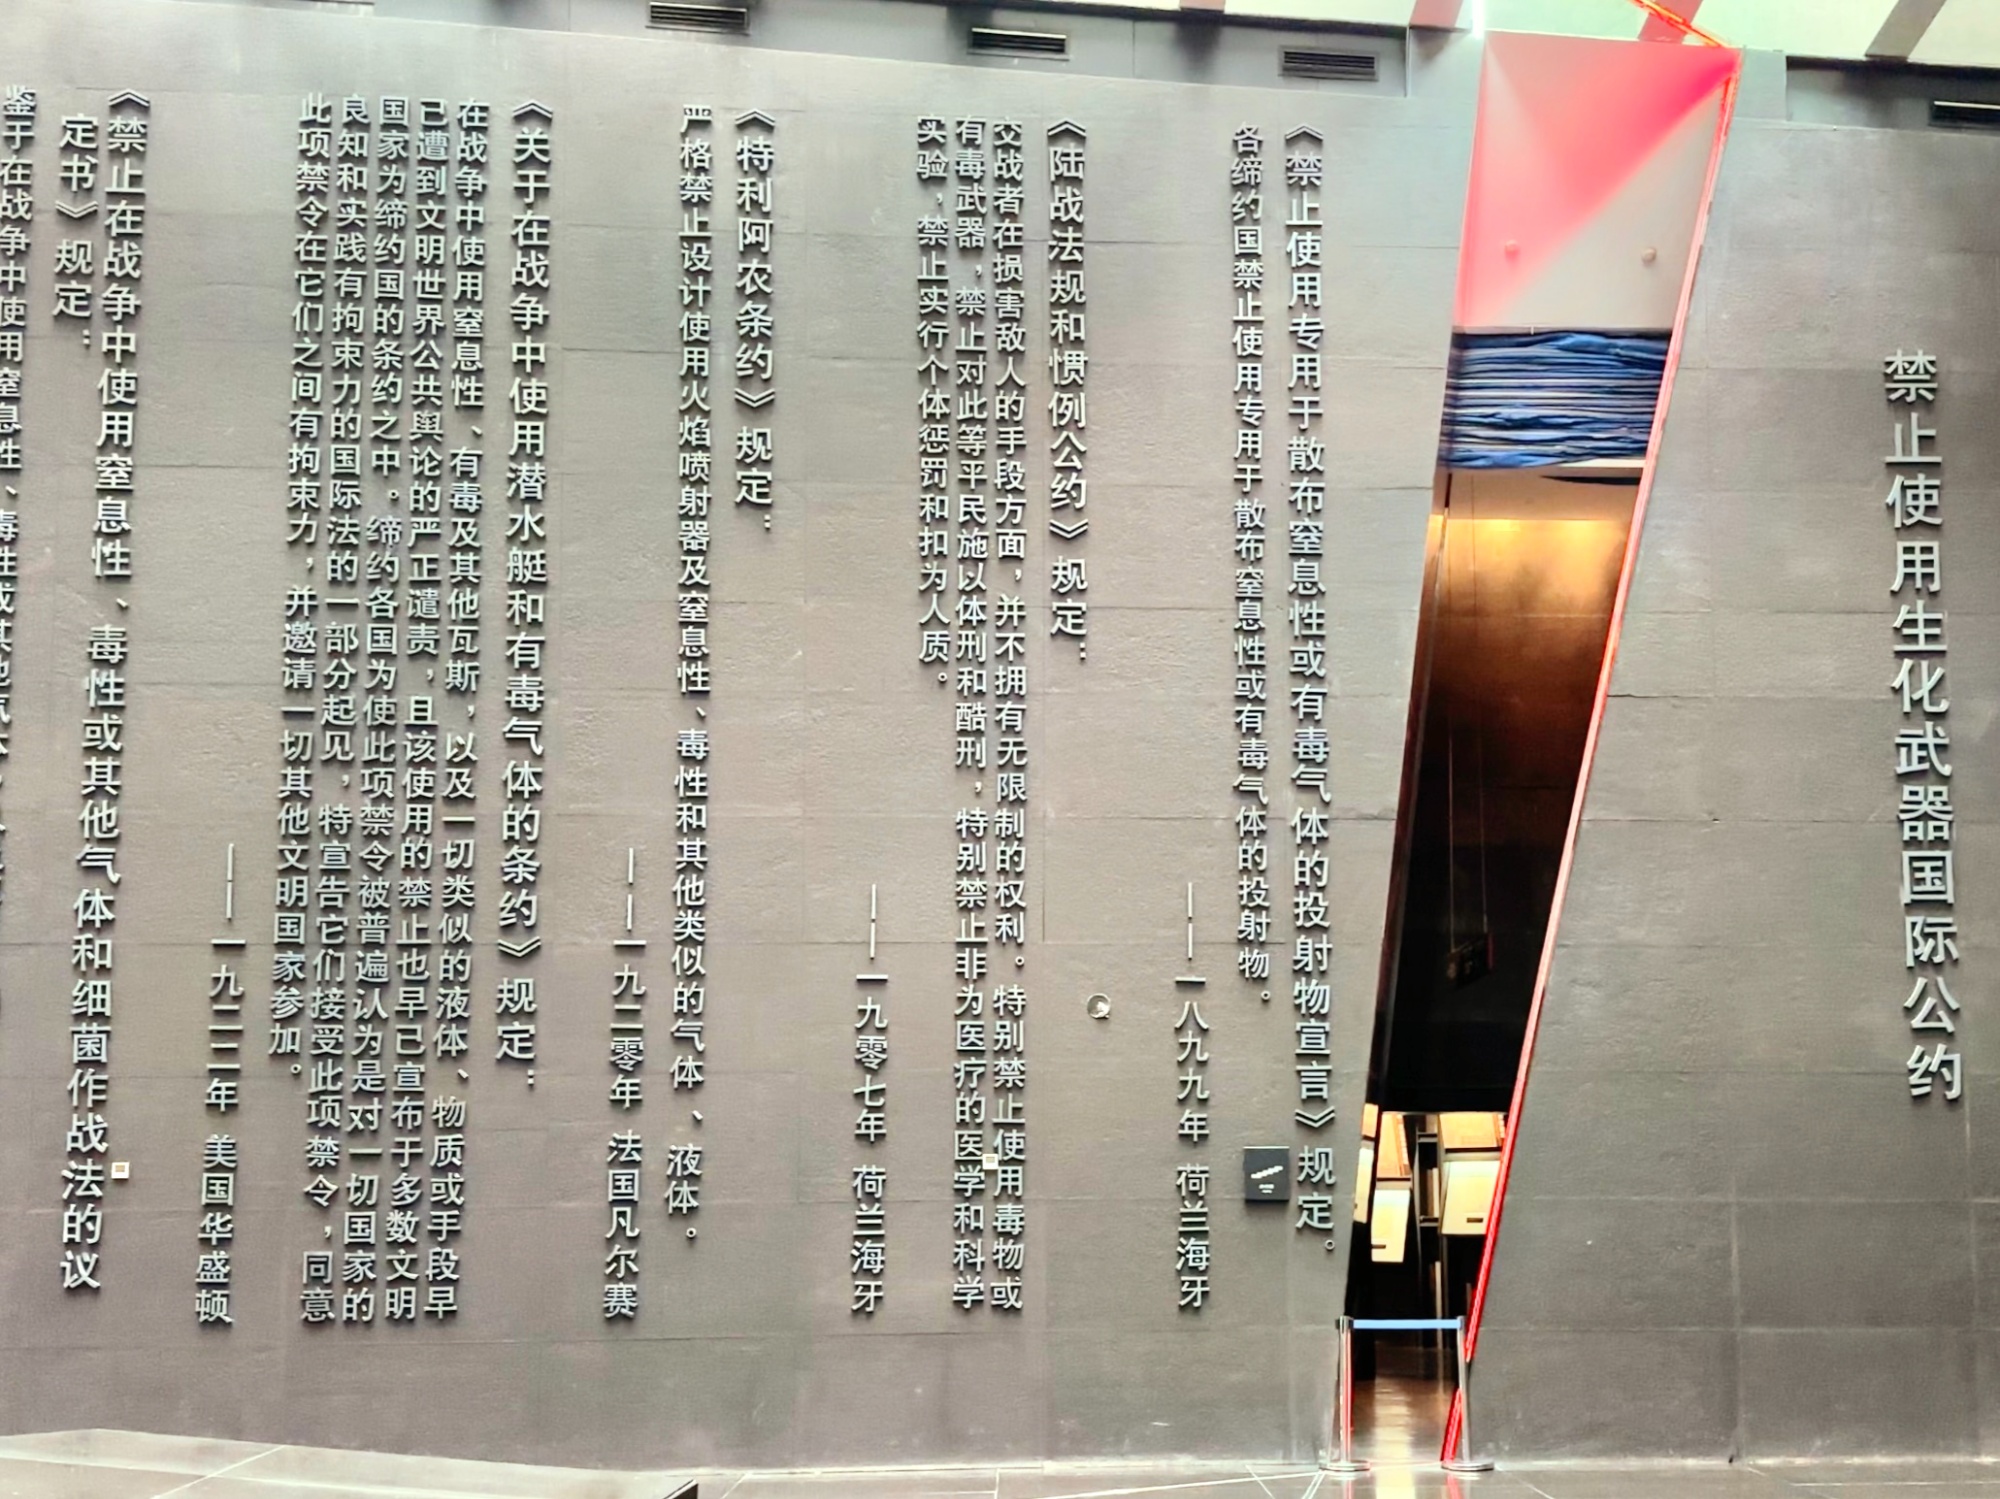 禁止使用生化武器国际公约
《禁止使用专用于散布窒息性或有毒气体的投射物宣言》规定。
各缔约国禁止使用专用于散布窒息性或有毒气体的投射物。
——一八九九年 荷兰海牙
《陆战法规和惯例公约》规定：
交战者在损害敌人的手段方面，并不拥有无限制的权利。特别禁止使用毒物或
有毒武器，禁止对此等平民施以体刑和酷刑，特别禁止非为医疗的医学和科学
实验，禁止实行个体惩罚和扣为人质。
——一九零七年 荷兰海牙
《特利阿农条约》规定：
严格禁止设计使用火焰喷射器及窒息性、毒性和其他类似的气体、液体。
——一九二零年 法国凡尔赛
《关于在战争中使用潜水艇和有毒气体的条约》规定：
在战争中使用窒息性、有毒及其他瓦斯，以及一切类似的液体、物质或手段早
已遭到文明世界公共舆论的严正谴责，且该使用的禁止也早已宣布于多数文明
国家为缔约国的条约之中。缔约各国为使此项禁令被普遍认为是对一切国家的
良知和实践有拘束力的国际法的一部分起见，特宣告它们接受此项禁令，同意
此项禁令在它们之间有拘束力，并邀请一切其他文明国家参加。
——一九二二年 美国华盛顿
《禁止在战争中使用窒息性、毒性或其他气体和细菌作战法的议
定书》规定：
鉴于在战争中使用窒息性、毒性或其他气体